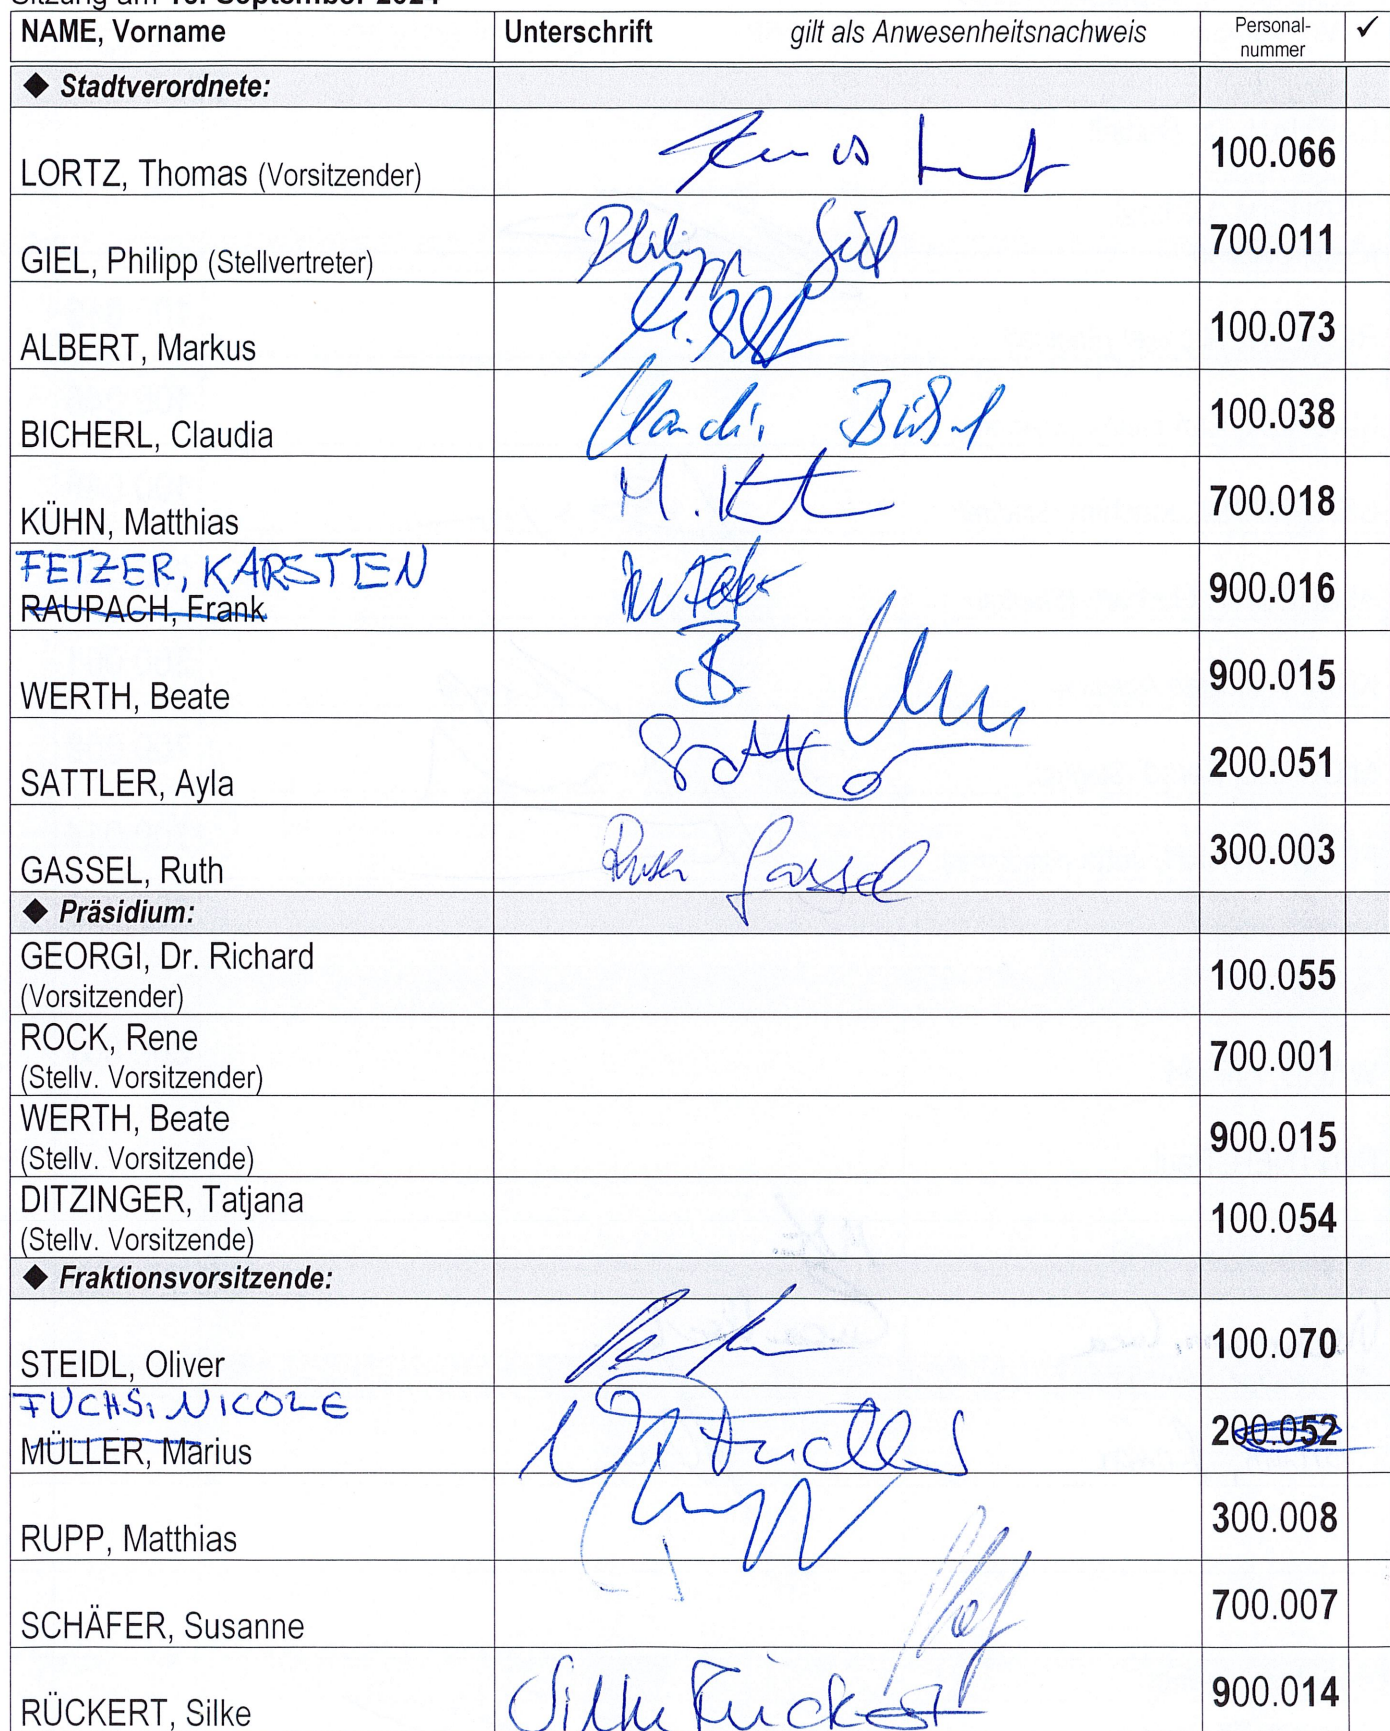 Sitzung am 16. September 2024
NAME, Vorname Unterschrift gilt als Anwesenheitsnachweis Personal-nummer ✓
◆ Stadtverordnete:
LORTZ, Thomas (Vorsitzender) 100.066
GIEL, Philipp (Stellvertreter) Philipp Giel 700.011
ALBERT, Markus 100.073
BICHERL, Claudia Claudia 100.038
KÜHN, Matthias M. 700.018
FETZER, KARSTEN
RAUPACH, Frank 900.016
WERTH, Beate B. 900.015
SATTLER, Ayla 200.051
GASSEL, Ruth Ruth Gassel 300.003
◆ Präsidium:
GEORGI, Dr. Richard
(Vorsitzender) 100.055
ROCK, Rene
(Stellv. Vorsitzender) 700.001
WERTH, Beate
(Stellv. Vorsitzende) 900.015
DITZINGER, Tatjana
(Stellv. Vorsitzende) 100.054
◆ Fraktionsvorsitzende:
STEIDL, Oliver 100.070
FUCHS, NICOLE
MÜLLER, Marius 200.052
RUPP, Matthias 300.008
SCHÄFER, Susanne 700.007
RÜCKERT, Silke Silke Rückert 900.014